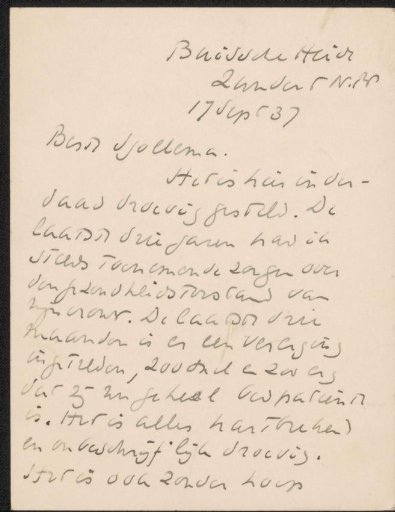 Buissche Heide
Zundert N.Br
17 Sept 37
Beste Sjollema.
Het is hier inder-
daad droevig gesteld. De
laatste drie jaren had ik
steeds toenemende zorgen over
den gezondheidstoestand van
mijn vrouw. De laatste drie
maanden is er een verergering
ingetreden, zoo snel en zoo erg
dat zij nu geheel bedpatiënte
is. Het is alles hartbrekend
en onbeschrijfelijk droevig.
Het is ook zonder hoop